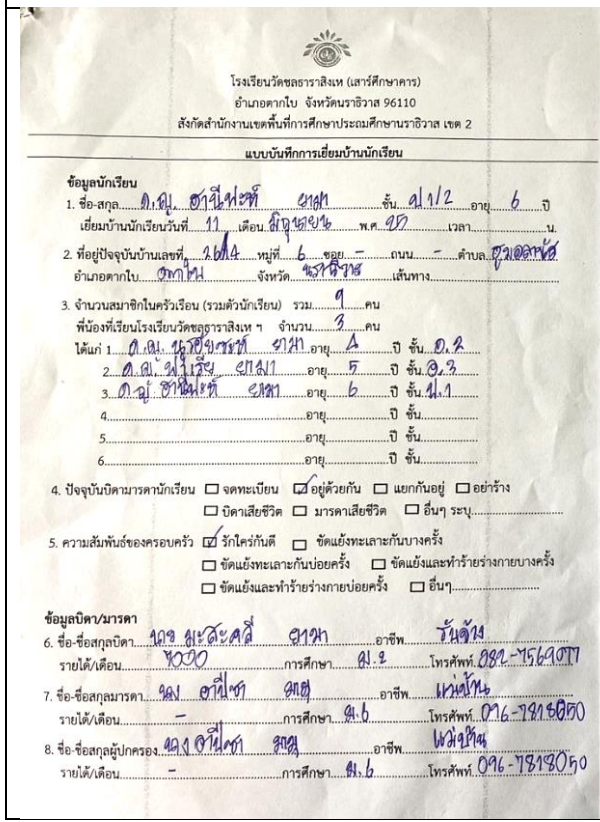 โรงเรียนวัดชลธาราสิงเห (เสาร์ศึกษาคาร)
อำเภอตากใบ จังหวัดนราธิวาส 96110
สังกัดสำนักงานเขตพื้นที่การศึกษาประถมศึกษานราธิวาส เขต 2
แบบบันทึกการเยี่ยมบ้านนักเรียน
ข้อมูลนักเรียน
1. ชื่อ-สกุล ด.ญ. ฮานีฟะห์ ยามา ชั้น ป.1/2 อายุ 6 ปี
เยี่ยมบ้านนักเรียนวันที่ 11 เดือน มิถุนายน พ.ศ. เวลา น.
2. ที่อยู่ปัจจุบันบ้านเลขที่ หมู่ที่ 6 ซอย - ถนน - ตำบล
อำเภอตากใบ ตากใบ จังหวัด นราธิวาส เส้นทาง
3. จำนวนสมาชิกในครัวเรือน (รวมตัวนักเรียน) รวม 9 คน
พี่น้องที่เรียนโรงเรียนวัดชลธาราสิงเห ฯ จำนวน 3 คน
ได้แก่ 1 ด.ญ. ยามา อายุ 4 ปี ชั้น อ.2
2 ด.ญ. ยามา อายุ 5 ปี ชั้น อ.3
3. ด.ญ. ฮานีฟะห์ ยามา อายุ 6 ปี ชั้น ป.1
4. อายุ ปี ชั้น
5. อายุ ปี ชั้น
6. อายุ ปี ชั้น
4. ปัจจุบันบิดามารดานักเรียน จดทะเบียน อยู่ด้วยกัน แยกกันอยู่ อย่าร้าง
บิดาเสียชีวิต มารดาเสียชีวิต อื่นๆ ระบุ
5. ความสัมพันธ์ของครอบครัว รักใคร่กันดี ขัดแย้งทะเลาะกันบางครั้ง
ขัดแย้งทะเลาะกันบ่อยครั้ง ขัดแย้งและทำร้ายร่างกายบางครั้ง
ขัดแย้งและทำร้ายร่างกายบ่อยครั้ง อื่นๆ
ข้อมูลบิดา/มารดา
6. ชื่อ-ชื่อสกุลบิดา นาย ยามา อาชีพ รับจ้าง
รายได้/เดือน 7000 การศึกษา ม.2 โทรศัพท์ 082-7569077
7. ชื่อ-ชื่อสกุลมารดา นาง อานีซา อาชีพ แม่บ้าน
รายได้/เดือน - การศึกษา ม.6 โทรศัพท์ 096-7818050
8. ชื่อ-ชื่อสกุลผู้ปกครอง นาง อานีซา อาชีพ แม่บ้าน
รายได้/เดือน - การศึกษา ม.6 โทรศัพท์ 096-7818050